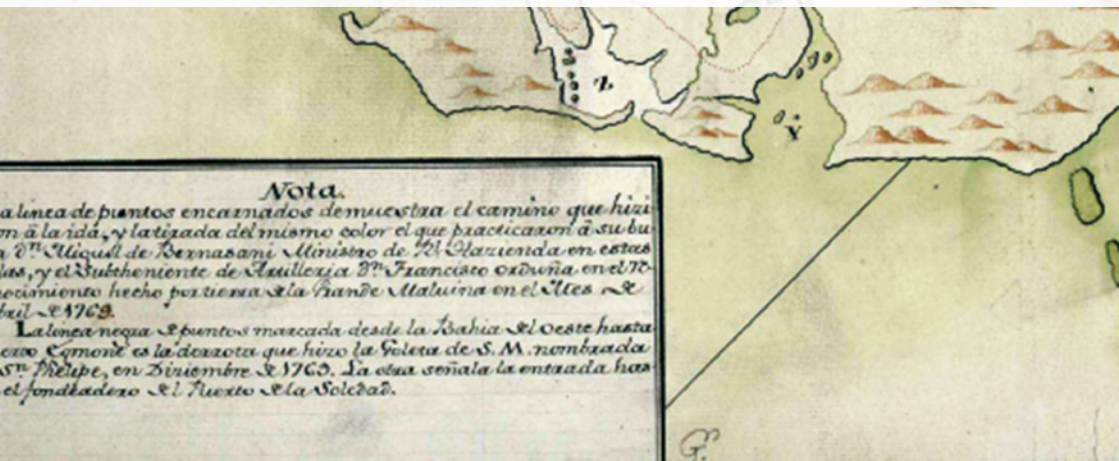 Z
Y
Nota.
a linea de puntos encarnados demuestra el camino que hizi
on â la ida, y la tirada del mismo color el que practicaron â su bu
a Dn. Miguel de Bernasani Ministro de Rl. Hazienda en estas
las, y el Subtheniente de Artilleria Dn. Francisco orduña en el re-
nocimiento hecho por tierra de la Grande Maluina en el Mes de
bril de 1769.
La linea negra de puntos marcada desde la Bahia del Oeste hasta
erto Egmont es la derrota que hizo la Goleta de S. M. nombrada
Sn. Phelipe, en Diziembre de 1769. La otra señala la entrada has
el fondeadero del Puerto de la Soledad.